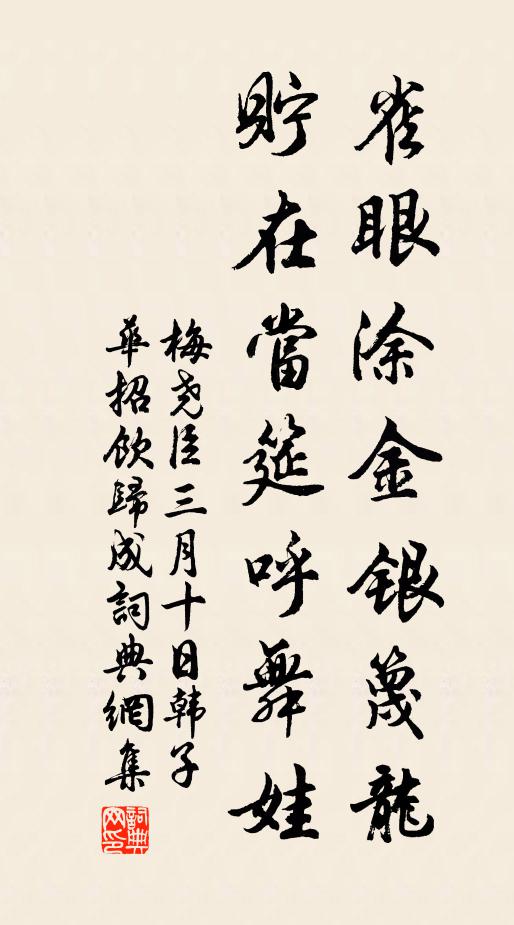 雀眼涂金银篾龍
貯在當筵呼舞娃
梅尧臣三月十日韩子
華招飲歸成詞典網集
詞典网印